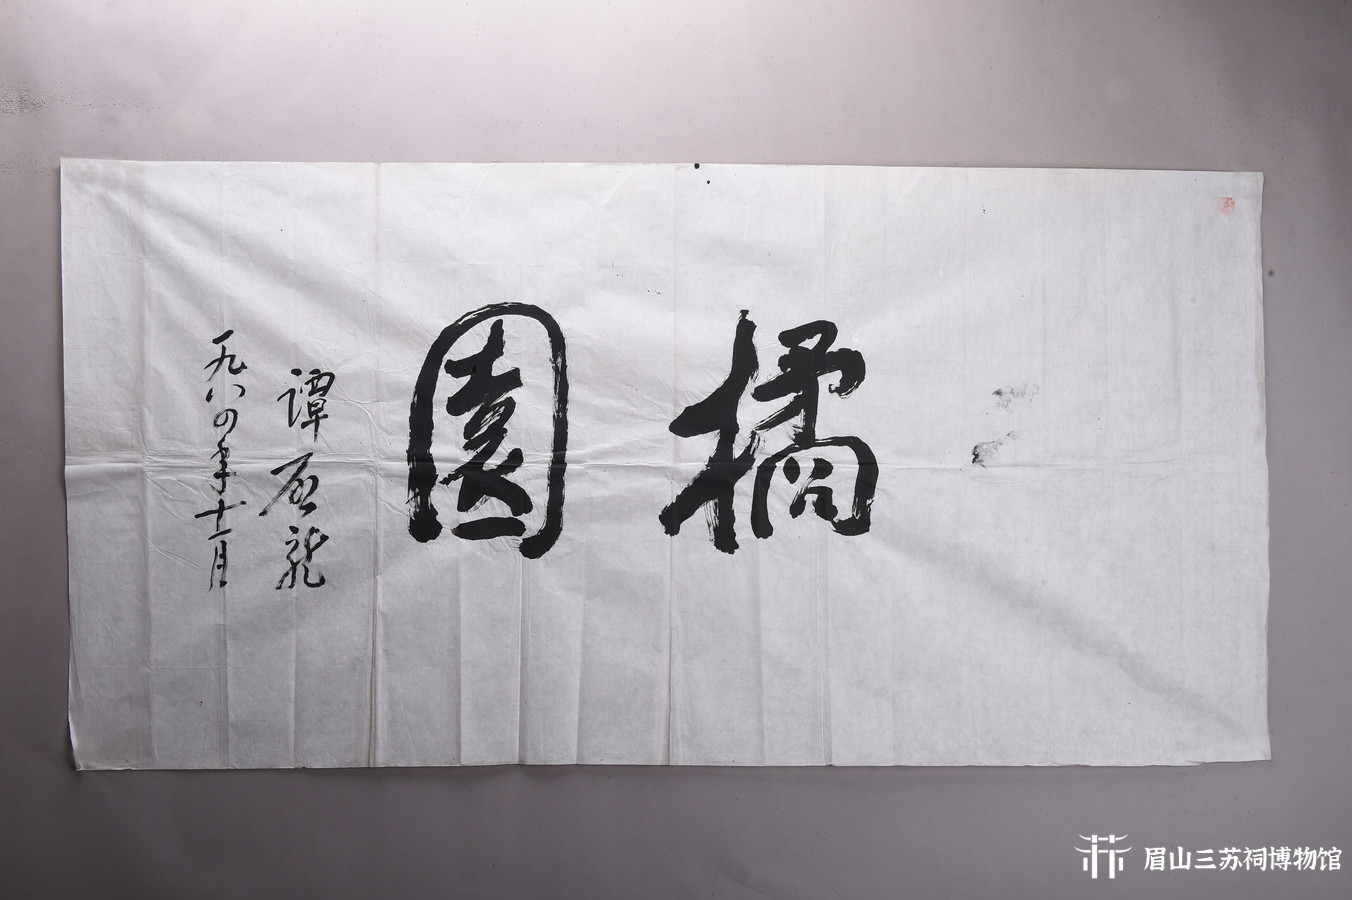 橘園
谭启龙
一九八四年十一月
眉山三苏祠博物馆